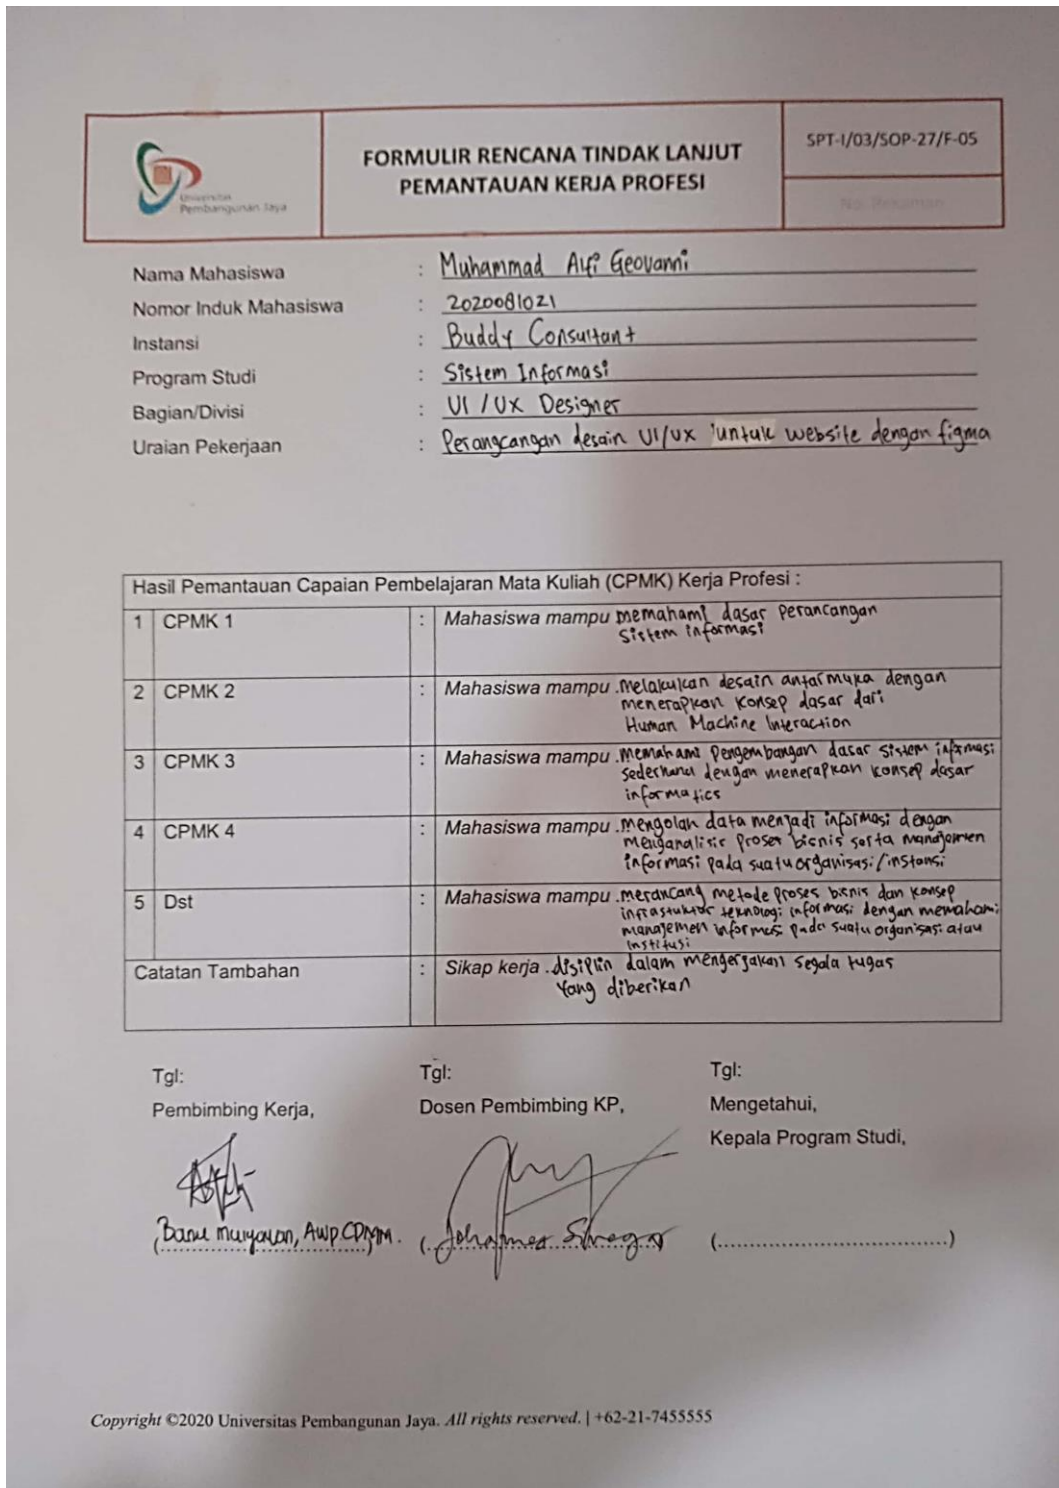 Universitas
Pembangunan Jaya
FORMULIR RENCANA TINDAK LANJUT
PEMANTAUAN KERJA PROFESI
SPT-I/03/SOP-27/F-05
No. Rekaman
Nama Mahasiswa : Muhammad Alfi Geovanni
Nomor Induk Mahasiswa : 2020081021
Instansi : Buddy Consultant
Program Studi : Sistem Informasi
Bagian/Divisi : UI / UX Designer
Uraian Pekerjaan : Perangcangan desain UI/UX untuk website dengan figma
Hasil Pemantauan Capaian Pembelajaran Mata Kuliah (CPMK) Kerja Profesi :
1 CPMK 1 : Mahasiswa mampu memahami dasar perancangan
Sistem informasi
2 CPMK 2 : Mahasiswa mampu .melakukan desain antarmuka dengan
menerapkan konsep dasar dari
Human Machine Interaction
3 CPMK 3 : Mahasiswa mampu .memahami pengembangan dasar sistem informasi
sederhana dengan menerapkan konsep dasar
informatics
4 CPMK 4 : Mahasiswa mampu .mengolah data menjadi informasi dengan
menganalisis proses bisnis serta manajemen
informasi pada suatu organisasi/instansi
5 Dst : Mahasiswa mampu .merancang metode proses bisnis dan konsep
infrastuktor teknologi informasi dengan memahami
manajemen informasi pada suatu organisasi atau
institusi
Catatan Tambahan : Sikap kerja .disiplin dalam mengerjakan segala tugas
yang diberikan
Tgl: Tgl: Tgl:
Pembimbing Kerja, Dosen Pembimbing KP, Mengetahui,
Kepala Program Studi,
(Banu , AWP.) (Johannes Siregar) (..................................)
Copyright ©2020 Universitas Pembangunan Jaya. All rights reserved. | +62-21-7455555